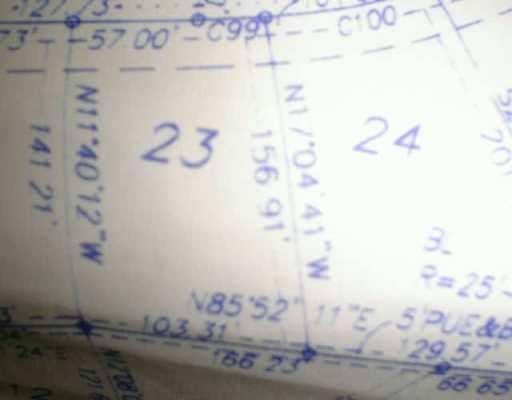 127.73'
73' 57.00' C99 C100
N11°40'12"W
141.21'
23
156.91'
N17°04'41"W
24
R=25'
N85°52'11"E
103.31'
5'PUE&B
166.23'
129.57'
66.65